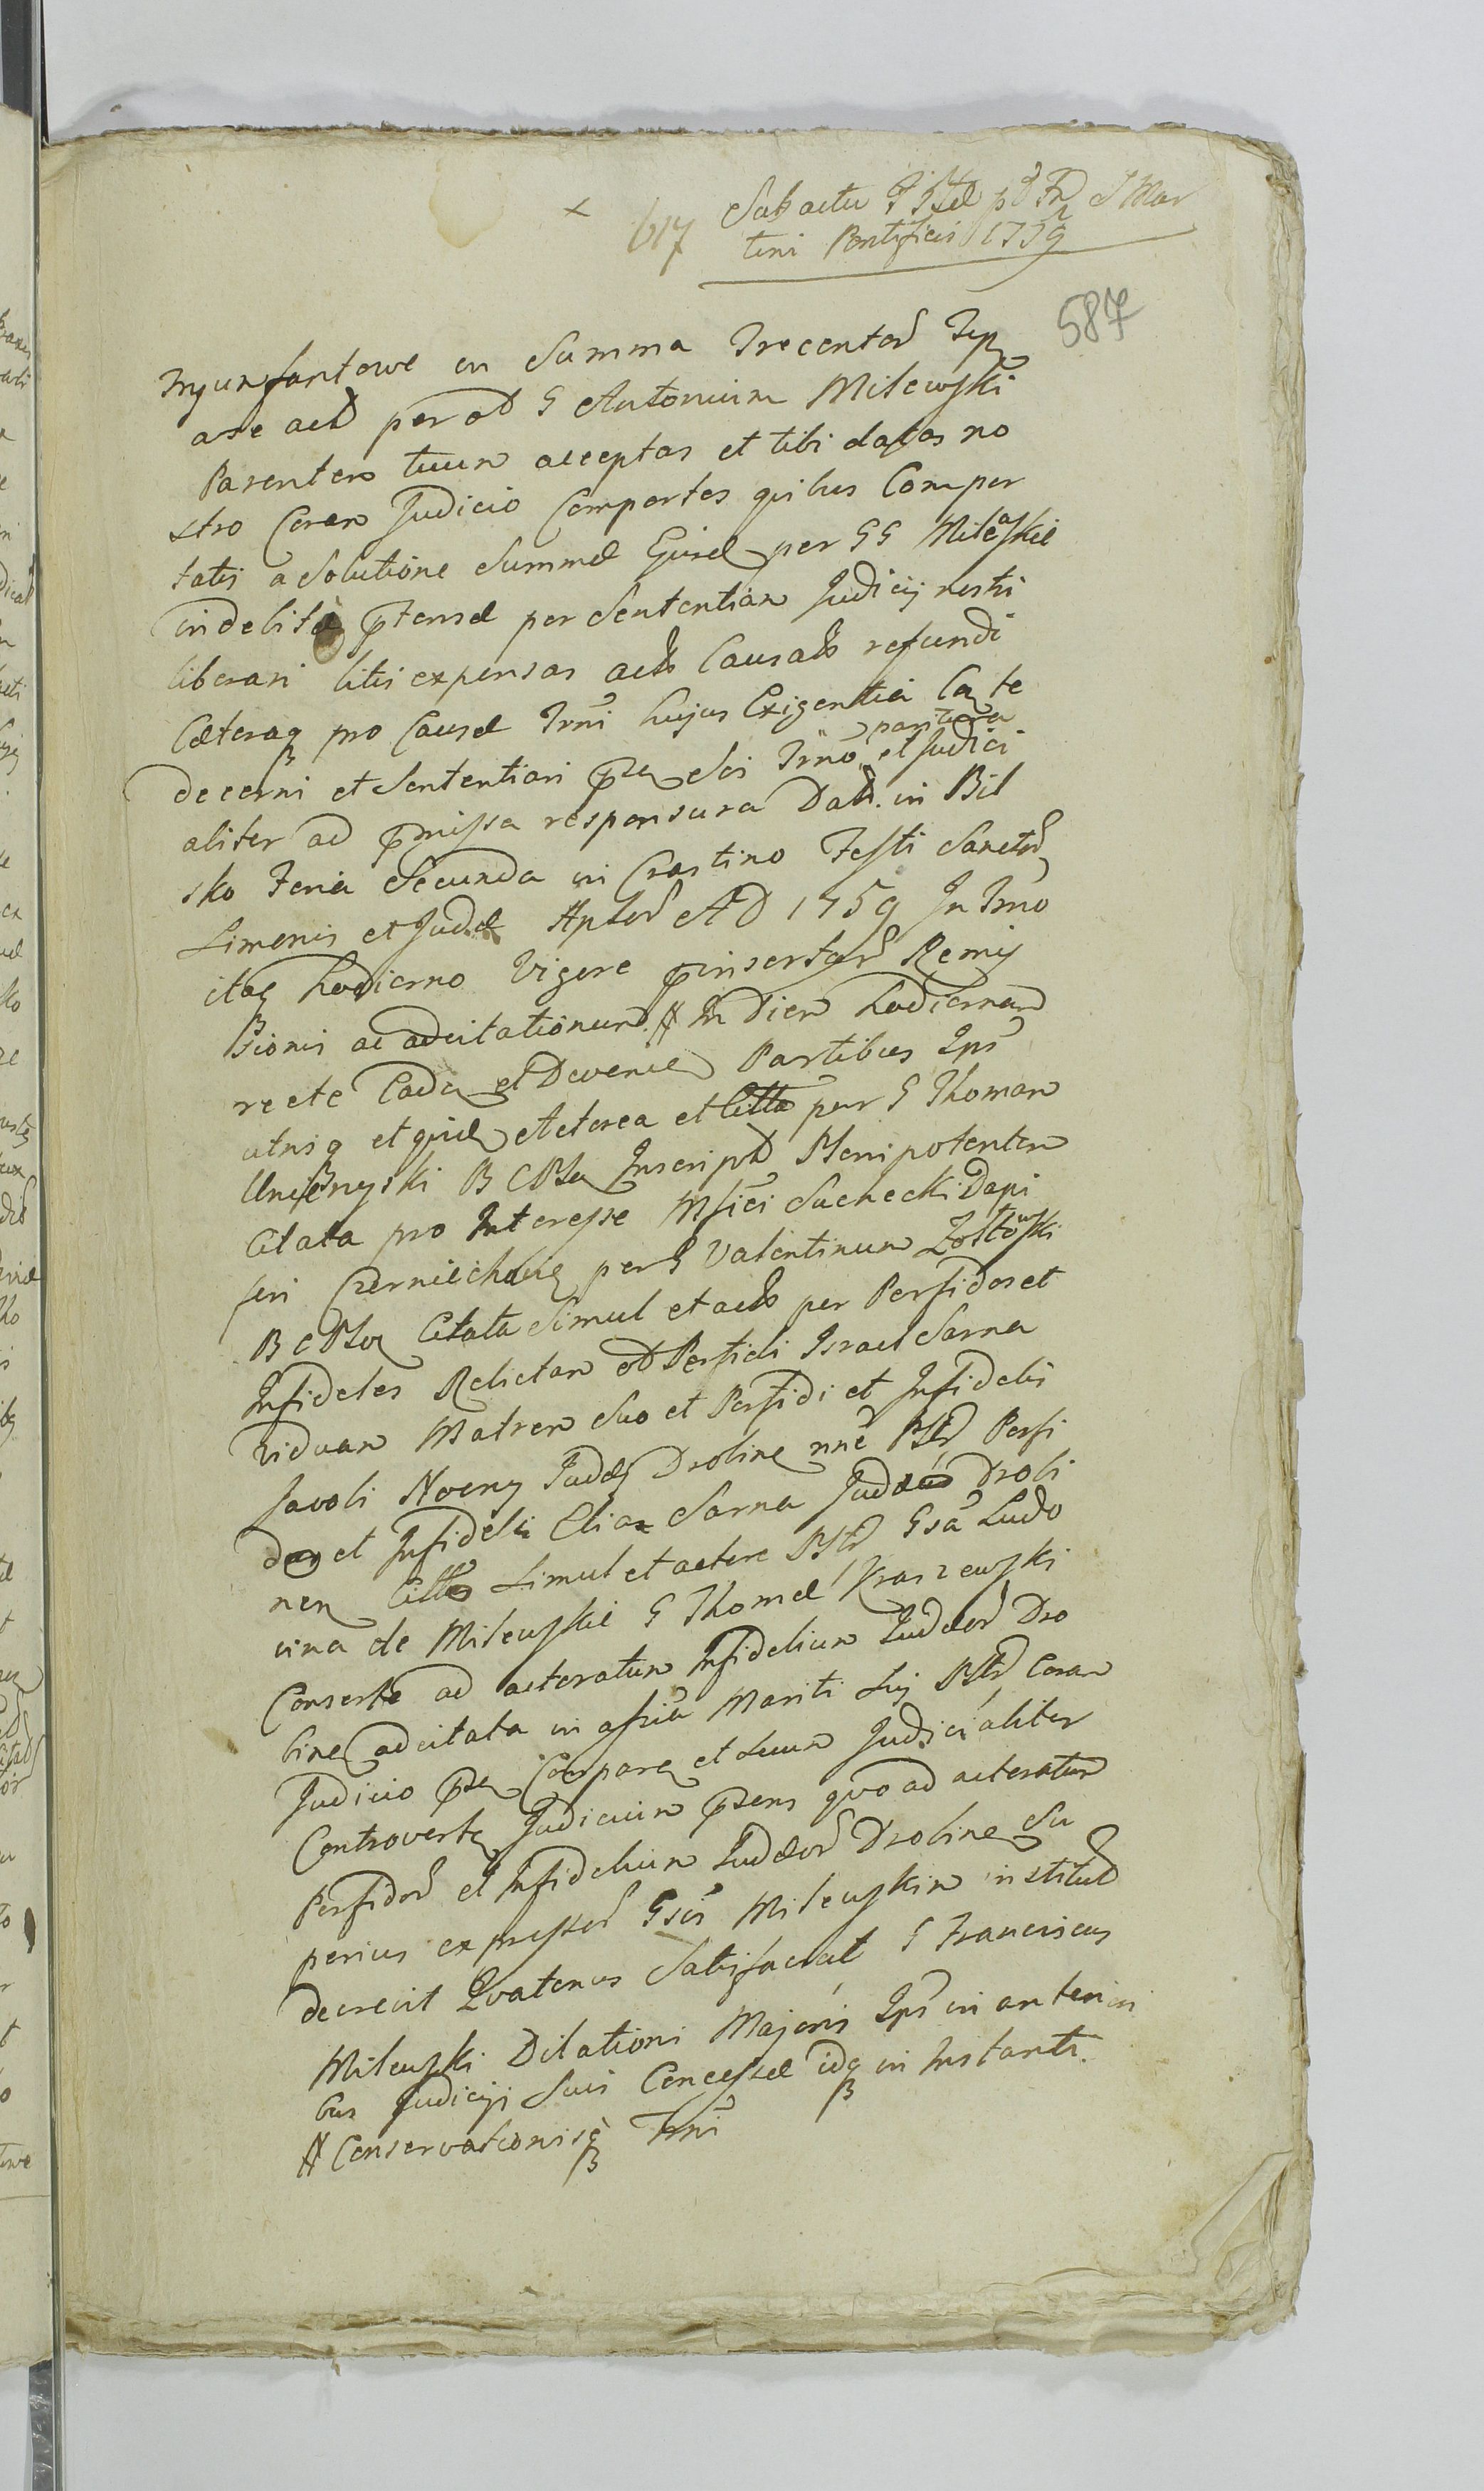 x 617 Sub actu F 5tæ p̃d Fti S Mar
tini Pontificis 1759
587
Trzyunfantowe in Summa Trecentor̃ Typ
are actũ per oĩ G Antonium Milewski
Parentem tuum acceptas et tibi datas no
stro Coram Judicio Comportes quibus Compor
tatis a Solutione Summæ Ejusdẽ per GG Milewskie
indebitè p̃tensæ per Sententiam Judicij nostri
liberari litis expensas actũ Causatas refundi
Cæteraq pro Causæ Trni hujus Exigentia Ca te
decerni et Sententiari p̃tũ Sis Trno paritura et Judici
aliter ad p̃missa responsura Dat. in Bil
sko Feria Secunda in Crastino Festi Sanctor̃
Simonis et Judæ Apłor̃ A D 1759 In Trno
itaq hodierno Vigore p̃insertar̃ Remis
sionis ac adcitationum # In Diem hodiernam
recte Cadeñ et Devenień Partibus Ips
utrisq et quidẽ Actorea et Citta per G Thomam
Unierzyski B C Bła Inscriptũ Plenipotentem
Citata pro Interesse Mfici Suchecki Dapi
feri Czerniechoviẽ per G Valentinum Zołtowski
B C Bła Citata Simul et actũ per Perfidos et
Infideles Relictam oĩ Perfidi Israel Sarna
Viduam Matrem Suo et Perfidi et Infidelis
Javoli Noeny Judæj Drobineñ nñe Płtr̃ Perfi
dus et Infidelis Elias Sarna Judæus Drobi
neñ Citto Simul et actore Płtr̃ Gsa Ludo
vina de Milewskie G Thomæ Kraszewski
Conserte ad actoratum Infidelium Judæor̃ Dro
bineñ adcitata in assia Mariti Sui Płtr̃ Coram
Judicio p̃nti Comparẽ et Suum Judicialiter
Controverteñ Judicium p̃sens quo ad actoratum
Perfidor̃ et Infidelium Judæor̃ Drobineñ Su
perius expressor̃ Gsis Milewskim institut̃
decrevit Quatenus Satisfaciat G Franciscus
Milewski Dilationi Majoris Ips in anteriori
bus Judicijs Suis Concessæ idq in Instanti.
# Conservationisq Trni